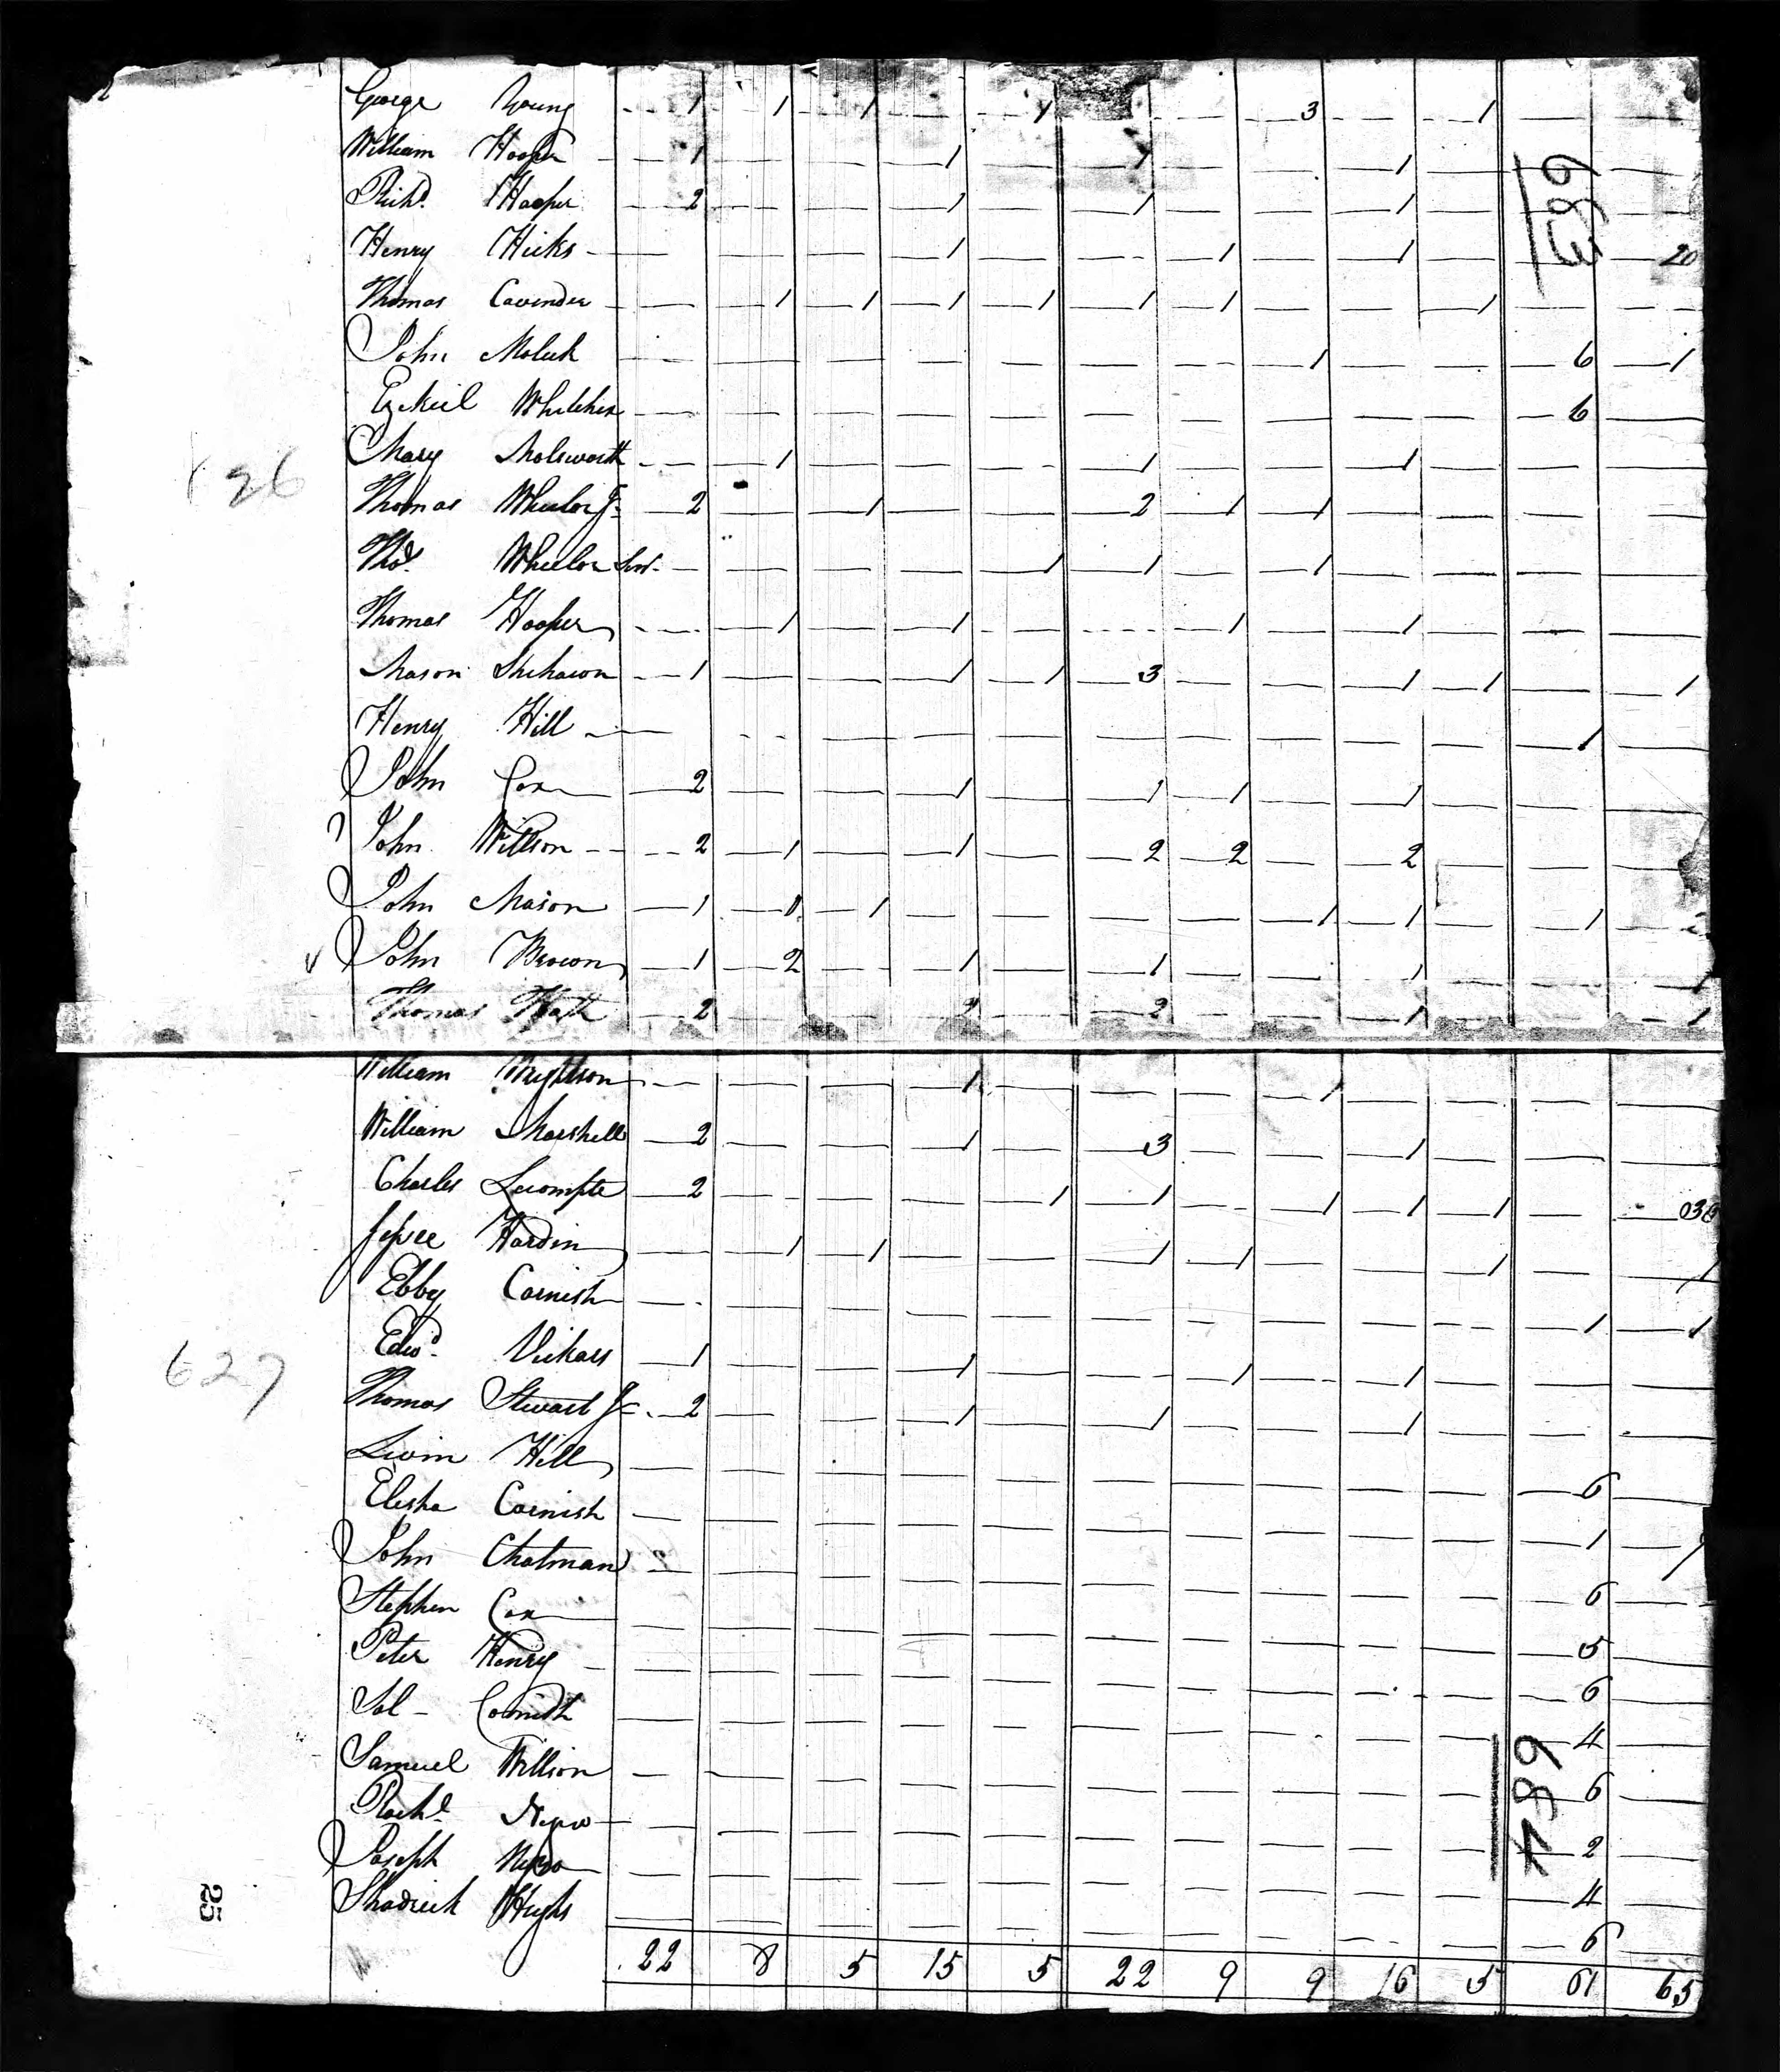 George Young 1 1 1 1 3 1
William Hooper 1 1 1 1
Richd. Hooper 2 1 1 1
Henry Hicks 1 1 1 20
Thomas Cavender 1 1 1 1 1 1 1
683
John Moluck 1 6 1
Ezekiel 6
Mary Molsworth 1 1 1
626
Thomas Wheelor Jr. 2 1 2 1 1
Thos. Wheelor Snr. 1 1 1
Thomas Hooper 1 1 1 1
Mason Shehawn 1 1 1 3 1 1 1
Henry Hill 1
John Cox 2 1 1 1 1
John Willson 2 1 1 2 2 2
John Mason 1 1 1 1 1 1
John Brown 1 2 1 1 1 1
Thomas 2 2 2 1 1
William Wrightson 1 1
William Marshell 2 1 3 1
Charles Lecompte 2 1 1 1 1 1
Jesse Hardin 1 1 1 1 1 1
Ebby Cornish 1 1
Edwd. Vickars 1 1 1 1
627
Thomas Stewart Jr. 2 1 1 1
Livin Hill 6
Elisha Cornish 1
John Chatman 6
Stephen Cox 5
Peter Henry 6
Sol Cornish 4
684
Samuel Willson 6
Rachl. 2
Joseph 4
Shadrick Hughs 6
25
22 8 5 15 5 22 9 9 16 5 61 65